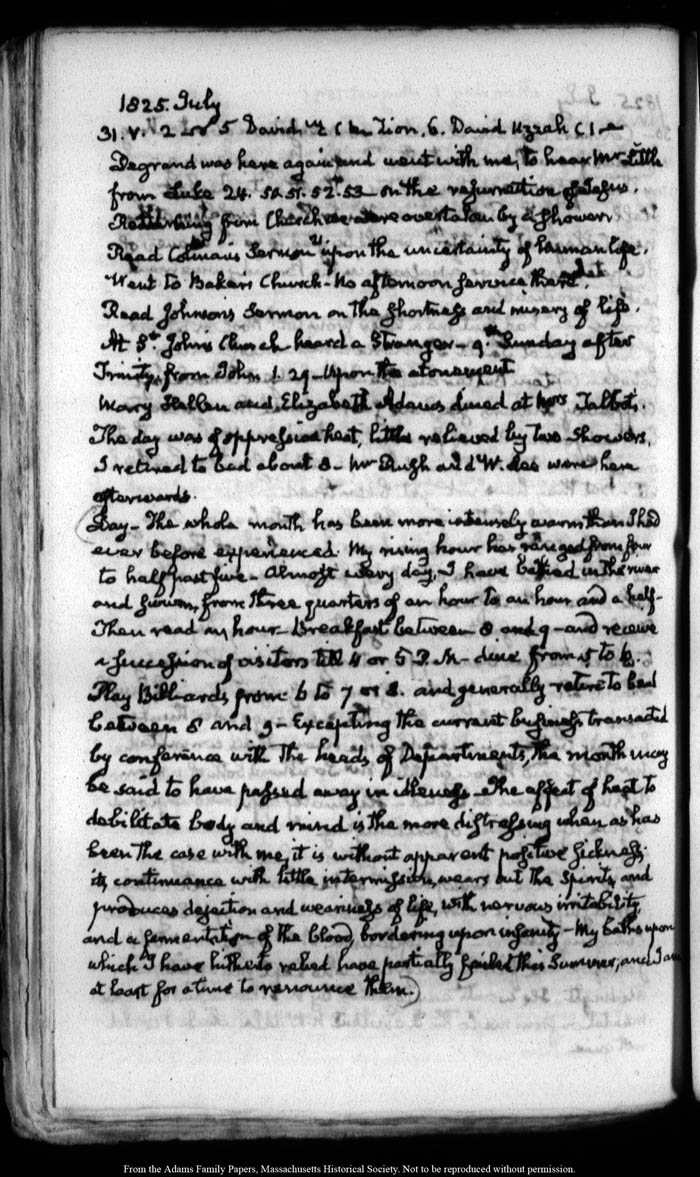 1825. July
31. V. 2 5 David. Zion. 6. David Uzzah
Degrand was here again and went with me, to hear Mr Little
from Luke 24. 50. 51. 52. 53 on the resurrection of Jesus.
Returning from Church we were overtaken by a Shower.
Read Colman's Sermon upon the uncertainty of human life.
Went to Baker's Church - No afternoon service there
Read Johnson's Sermon on the shortness and misery of life.
At St John's Church heard a Stranger - 9th Sunday after
Trinity, from John 1. 29 - Upon the atonement
Mary Hellen and Elizabeth Adams dined at Mrs Talbot's.
The day was of oppressive heat, little relieved by two Showers.
I retired to bed about 8 - Mr Rush and W. Lee were here
afterwards.
Day - The whole month has been more intensely warm than I had
ever before experienced. My rising hour has ranged from four
to half past five - Almost every day, I have bathed in the river
and swum, from three quarters of an hour to an hour and a half -
Then read an hour - Breakfast between 8 and 9 - and receive
a succession of visitors till 4 or 5 P.M. - dine from 5 to 6.
Play Billiards from 6 to 7 or 8. and generally retire to bed
between 8 and 9 - Excepting the current business transacted
by conference with the heads of Departments, the month may
be said to have passed away in idleness - The effect of heat to
debilitate body and mind is the more distressing when as has
been the case with me, it is without apparent positive sickness.
its continuance with little intermission, wears out the Spirits, and
produces dejection and weariness of life, with nervous irritability,
and a fermentation of the blood, bordering upon insanity - My baths upon
which I have hitherto relied have partially failed this Summer, and I am
at least for a time to renounce them.)
From the Adams Family Papers, Massachusetts Historical Society. Not to be reproduced without permission.